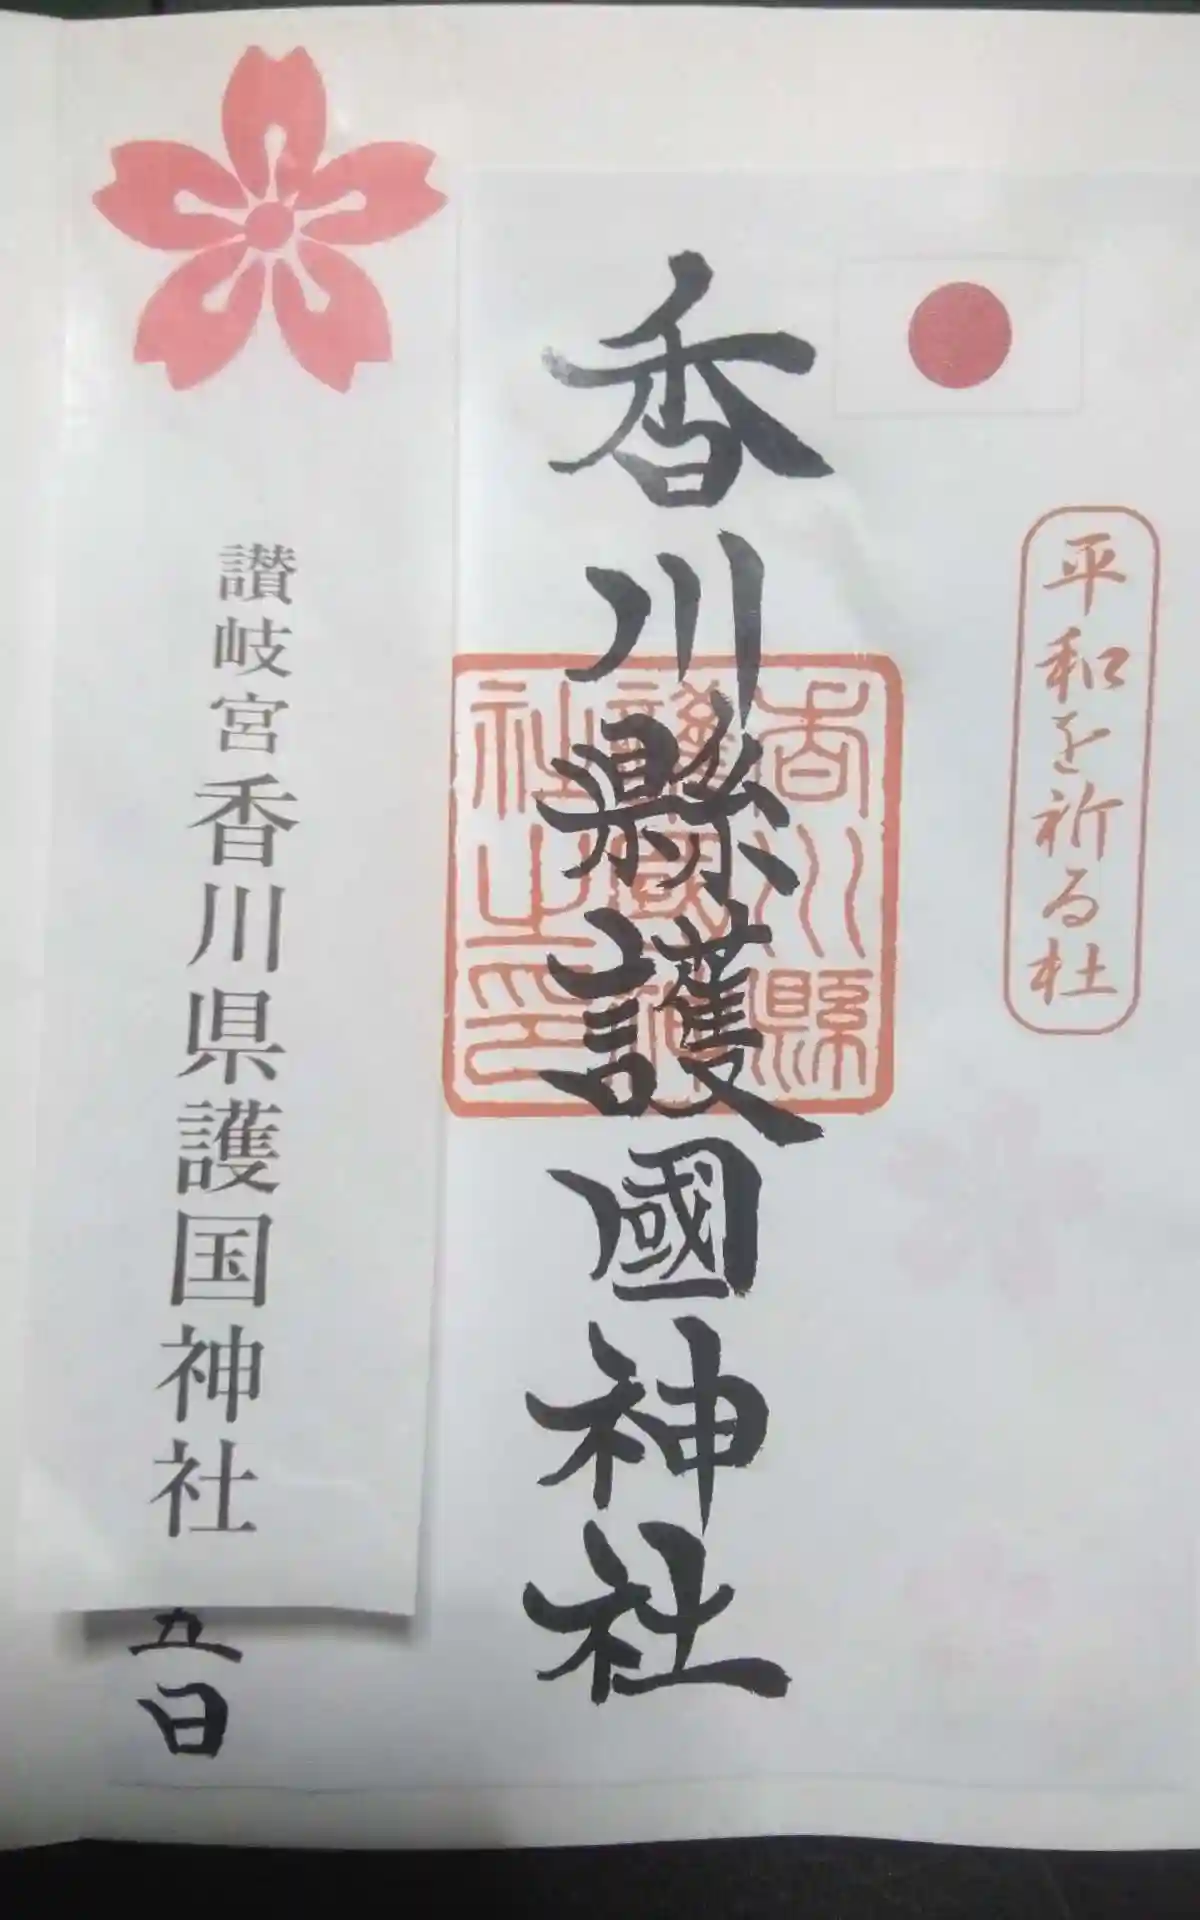 平和を祈る社
香川縣護國神社
香川縣
護國神
社之印
讃岐宮香川県護国神社
五日